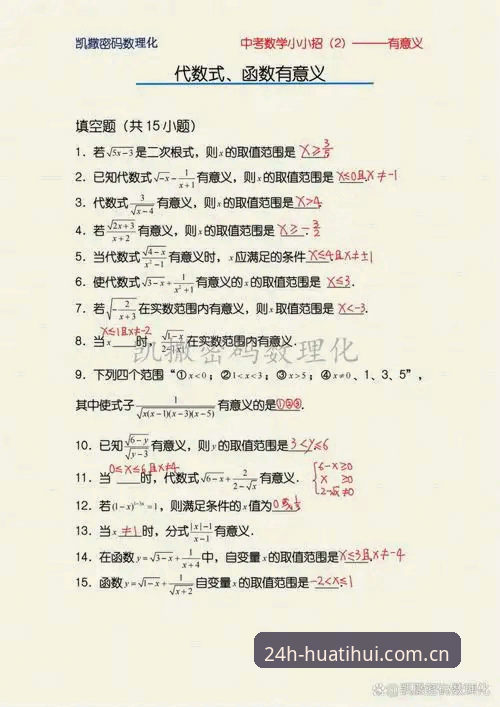 凯撒密码数理化 中考数学小小招（2）———有意义
代数式、函数有意义
填空题（共15小题）
1．若√(5x-3)是二次根式，则x的取值范围是 x≥3/5
2．已知代数式√(-x)-1/(x+1)有意义，则x的取值范围是 x≤0且x≠-1
3．代数式3/√(x-4)有意义，则x的取值范围是 x>4.
4．若√(2x+3)/(x+2)有意义，则x的取值范围是 x≥-3/2
5．当代数式√(4-x)/(x²-1)有意义时，x应满足的条件 x≤4且x≠±1
6．使代数式√(3-x)+1/(x²+1)有意义的x的取值范围是 x≤3.
7．若√(-2/(x+3))在实数范围内有意义，则x取值范围是 x<-3.
x≤1且x≠-2
8．当x____时，在实数范围内有意义．
凯撒密码数理化
9．下列四个范围“①x<0；②1<x<3；③x>5；④x≠0、1、3、5”，
其中使式子1/√(x(x-1)(x-3)(x-5))有意义的是①②③.
10．已知√(6-y)/√(y-3)有意义，则y的取值范围是 3<y≤6
0≤x≤6且x≠4
11．当____时，代数式√(6-x)+2/(2-√x)有意义． { 6-x≥0 x≥0 2-√x≠0
12．若(1-x)^(1-3x)=1，则满足条件的x值为 0或1/3
13．当x ≠1时，分式(|x|-1)/(x-1)有意义．
14．在函数y=√(3-x)+1/(x+4)中，自变量x的取值范围是 x≤3且x≠-4
15．函数y=√(1-x)+1/√(x+2)自变量x的取值范围是 -2<x≤1
24h-huatihui.com.cn
@凯撒密码数理化